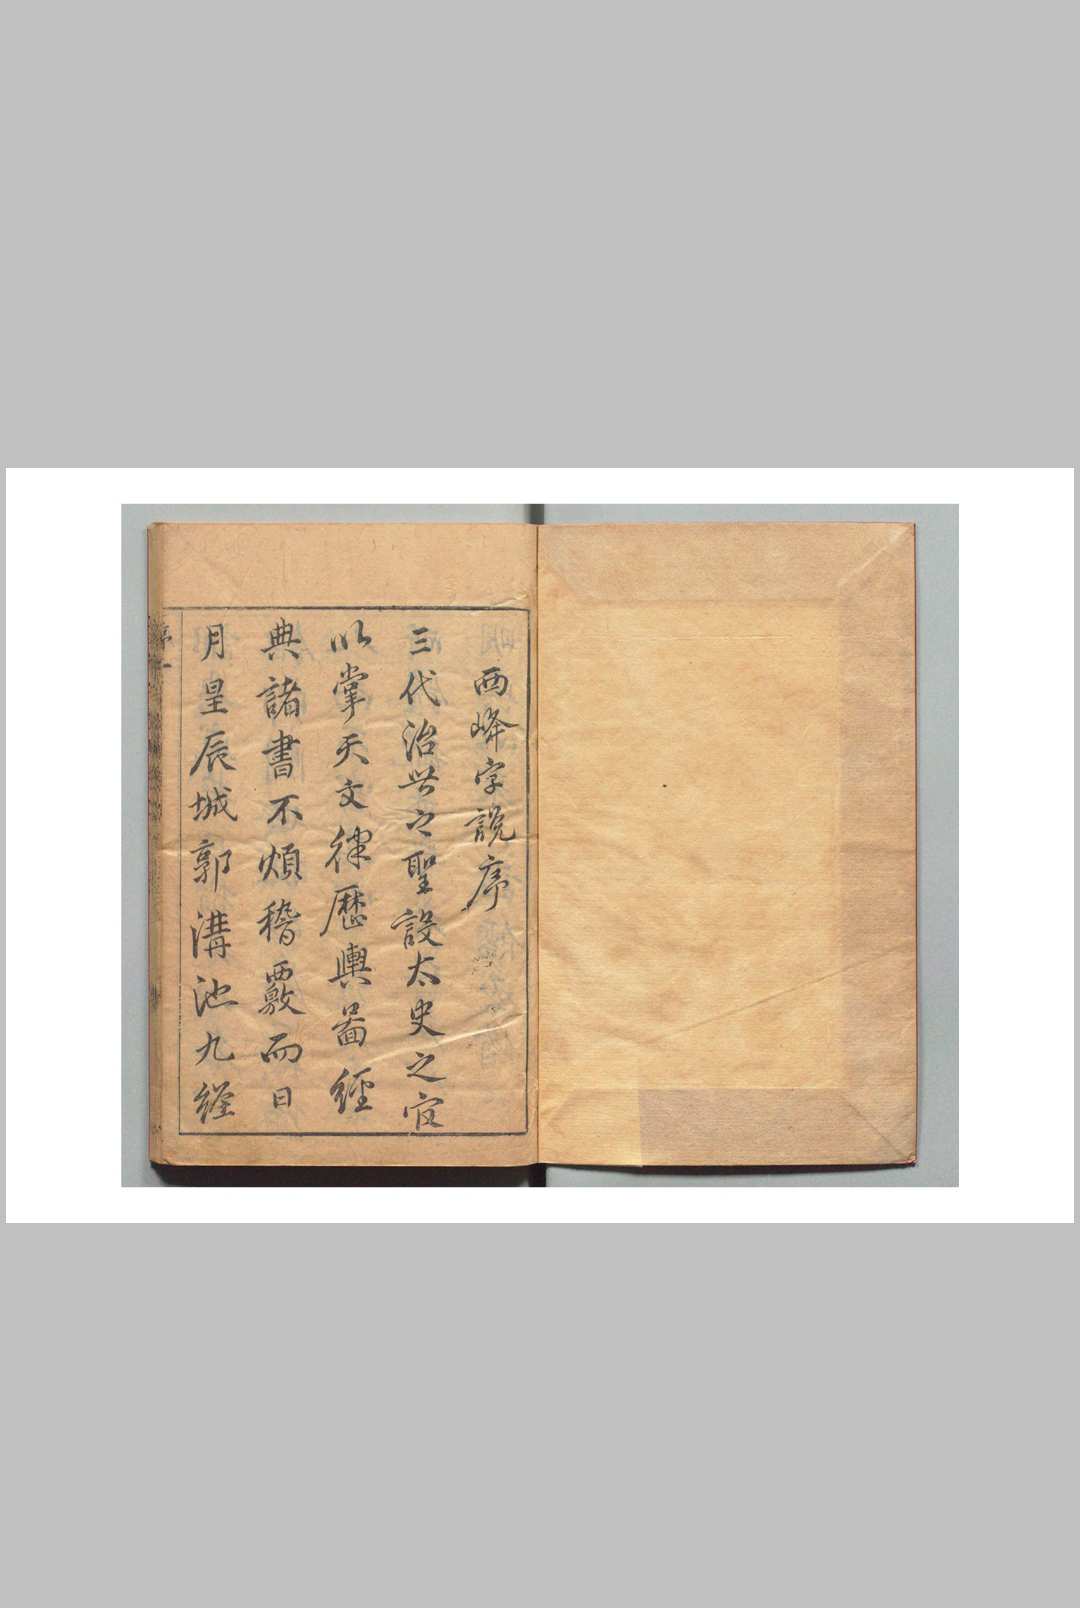 西峰字說序
三代治世之聖設太史之官
以掌天文律歷輿啚經
典諸書不煩稽覈而日
月皇辰城郭溝池九經
序一